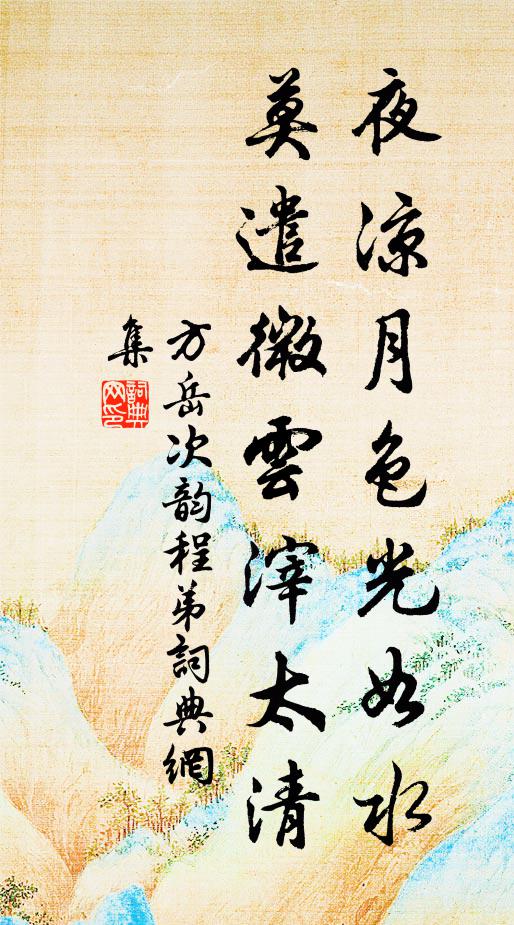 夜涼月色光如水
莫遣微雲滓太清
方岳次韵程弟詞典網
集
詞典網印